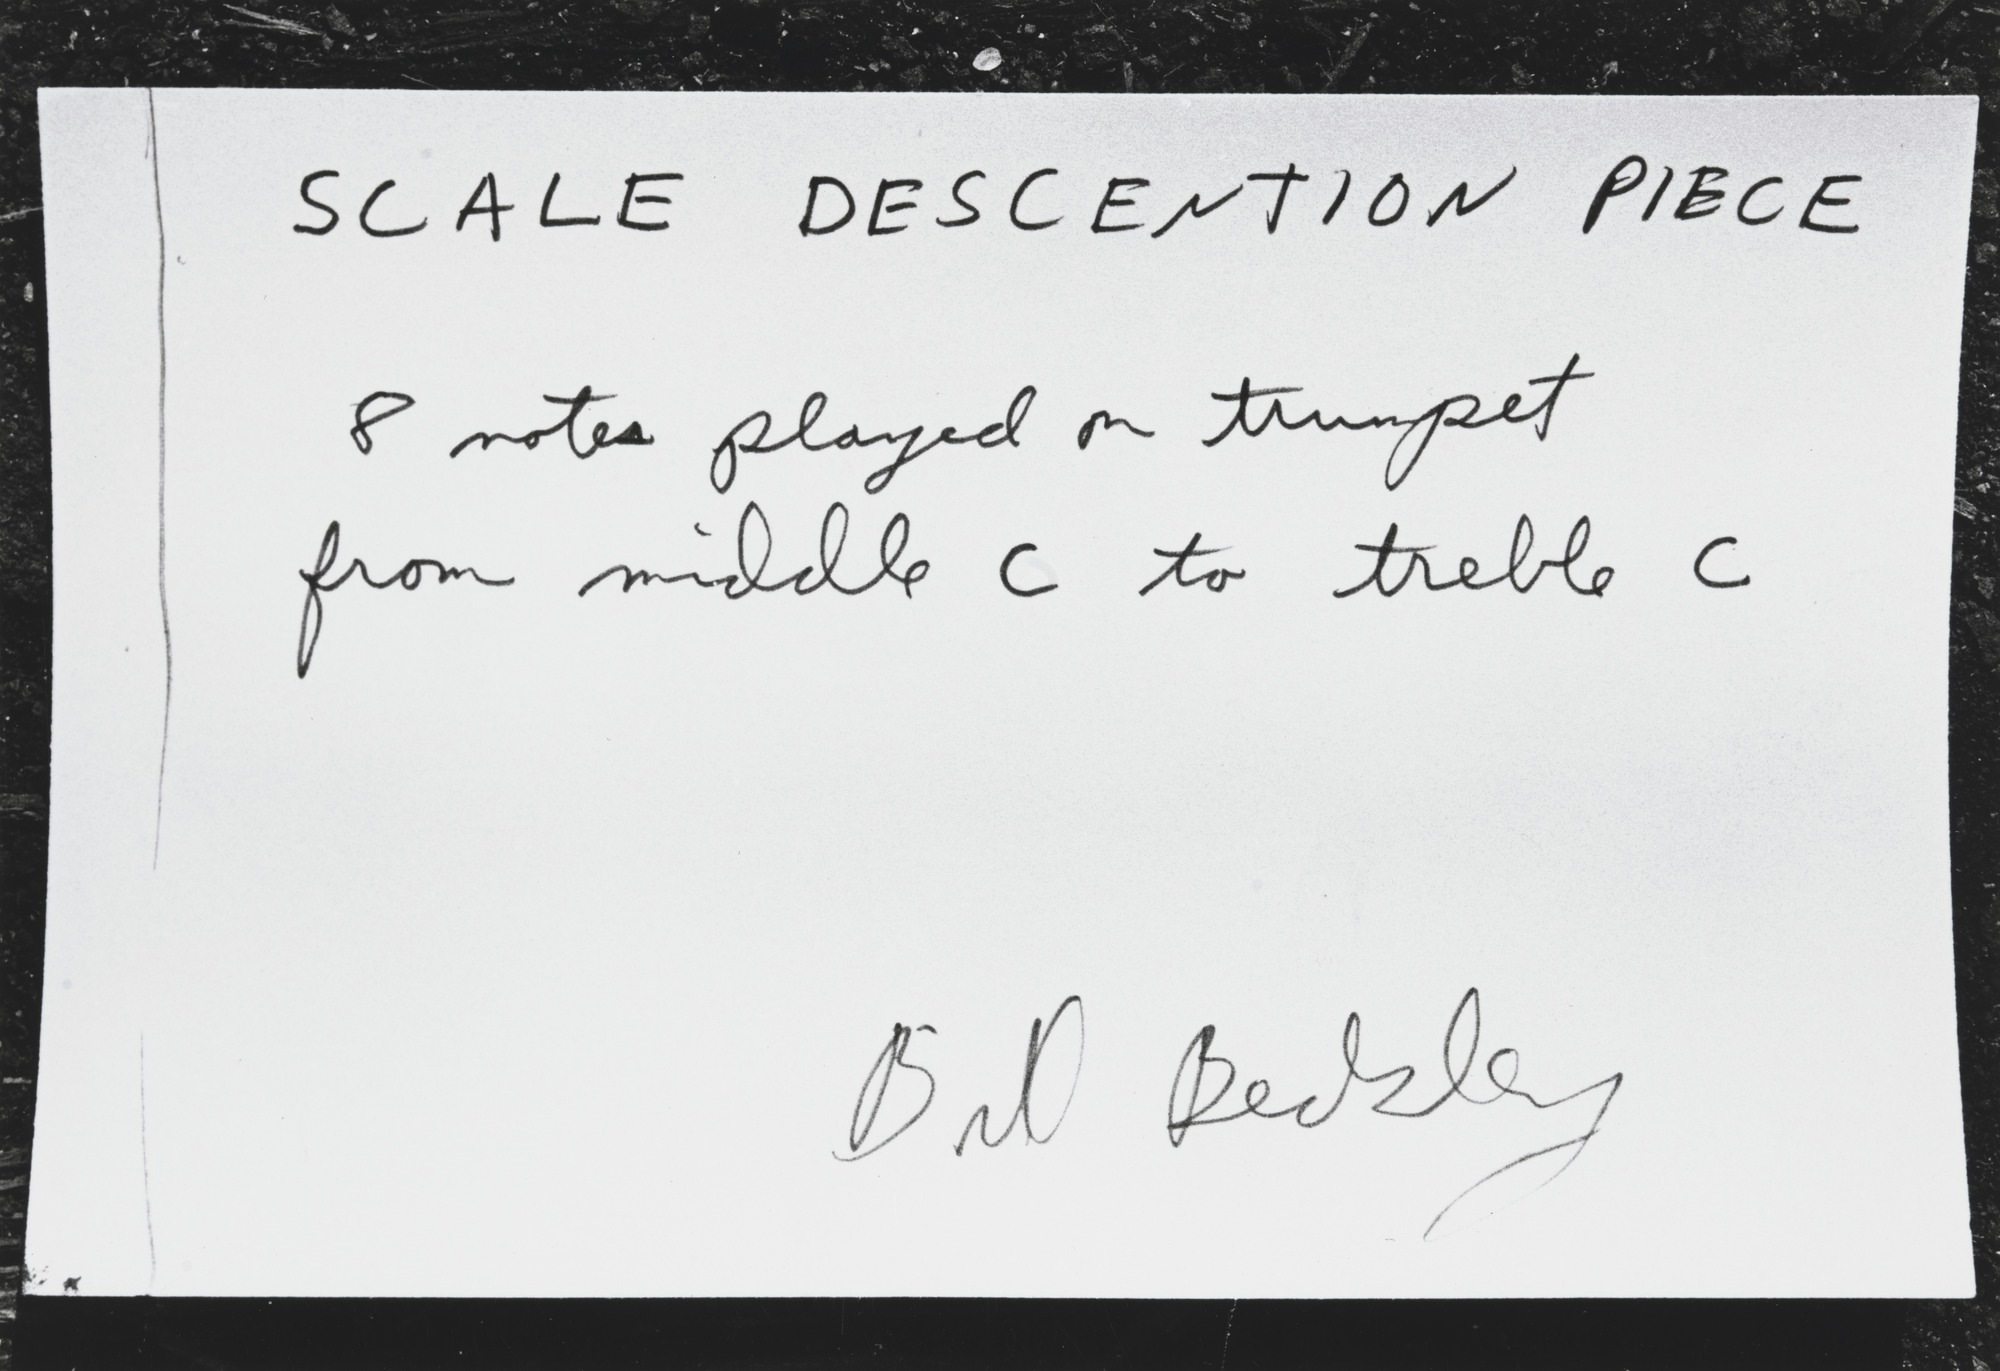 SCALE DESCENTION PIECE
8 notes played on trumpet
from middle C to treble C
Bill Beckley